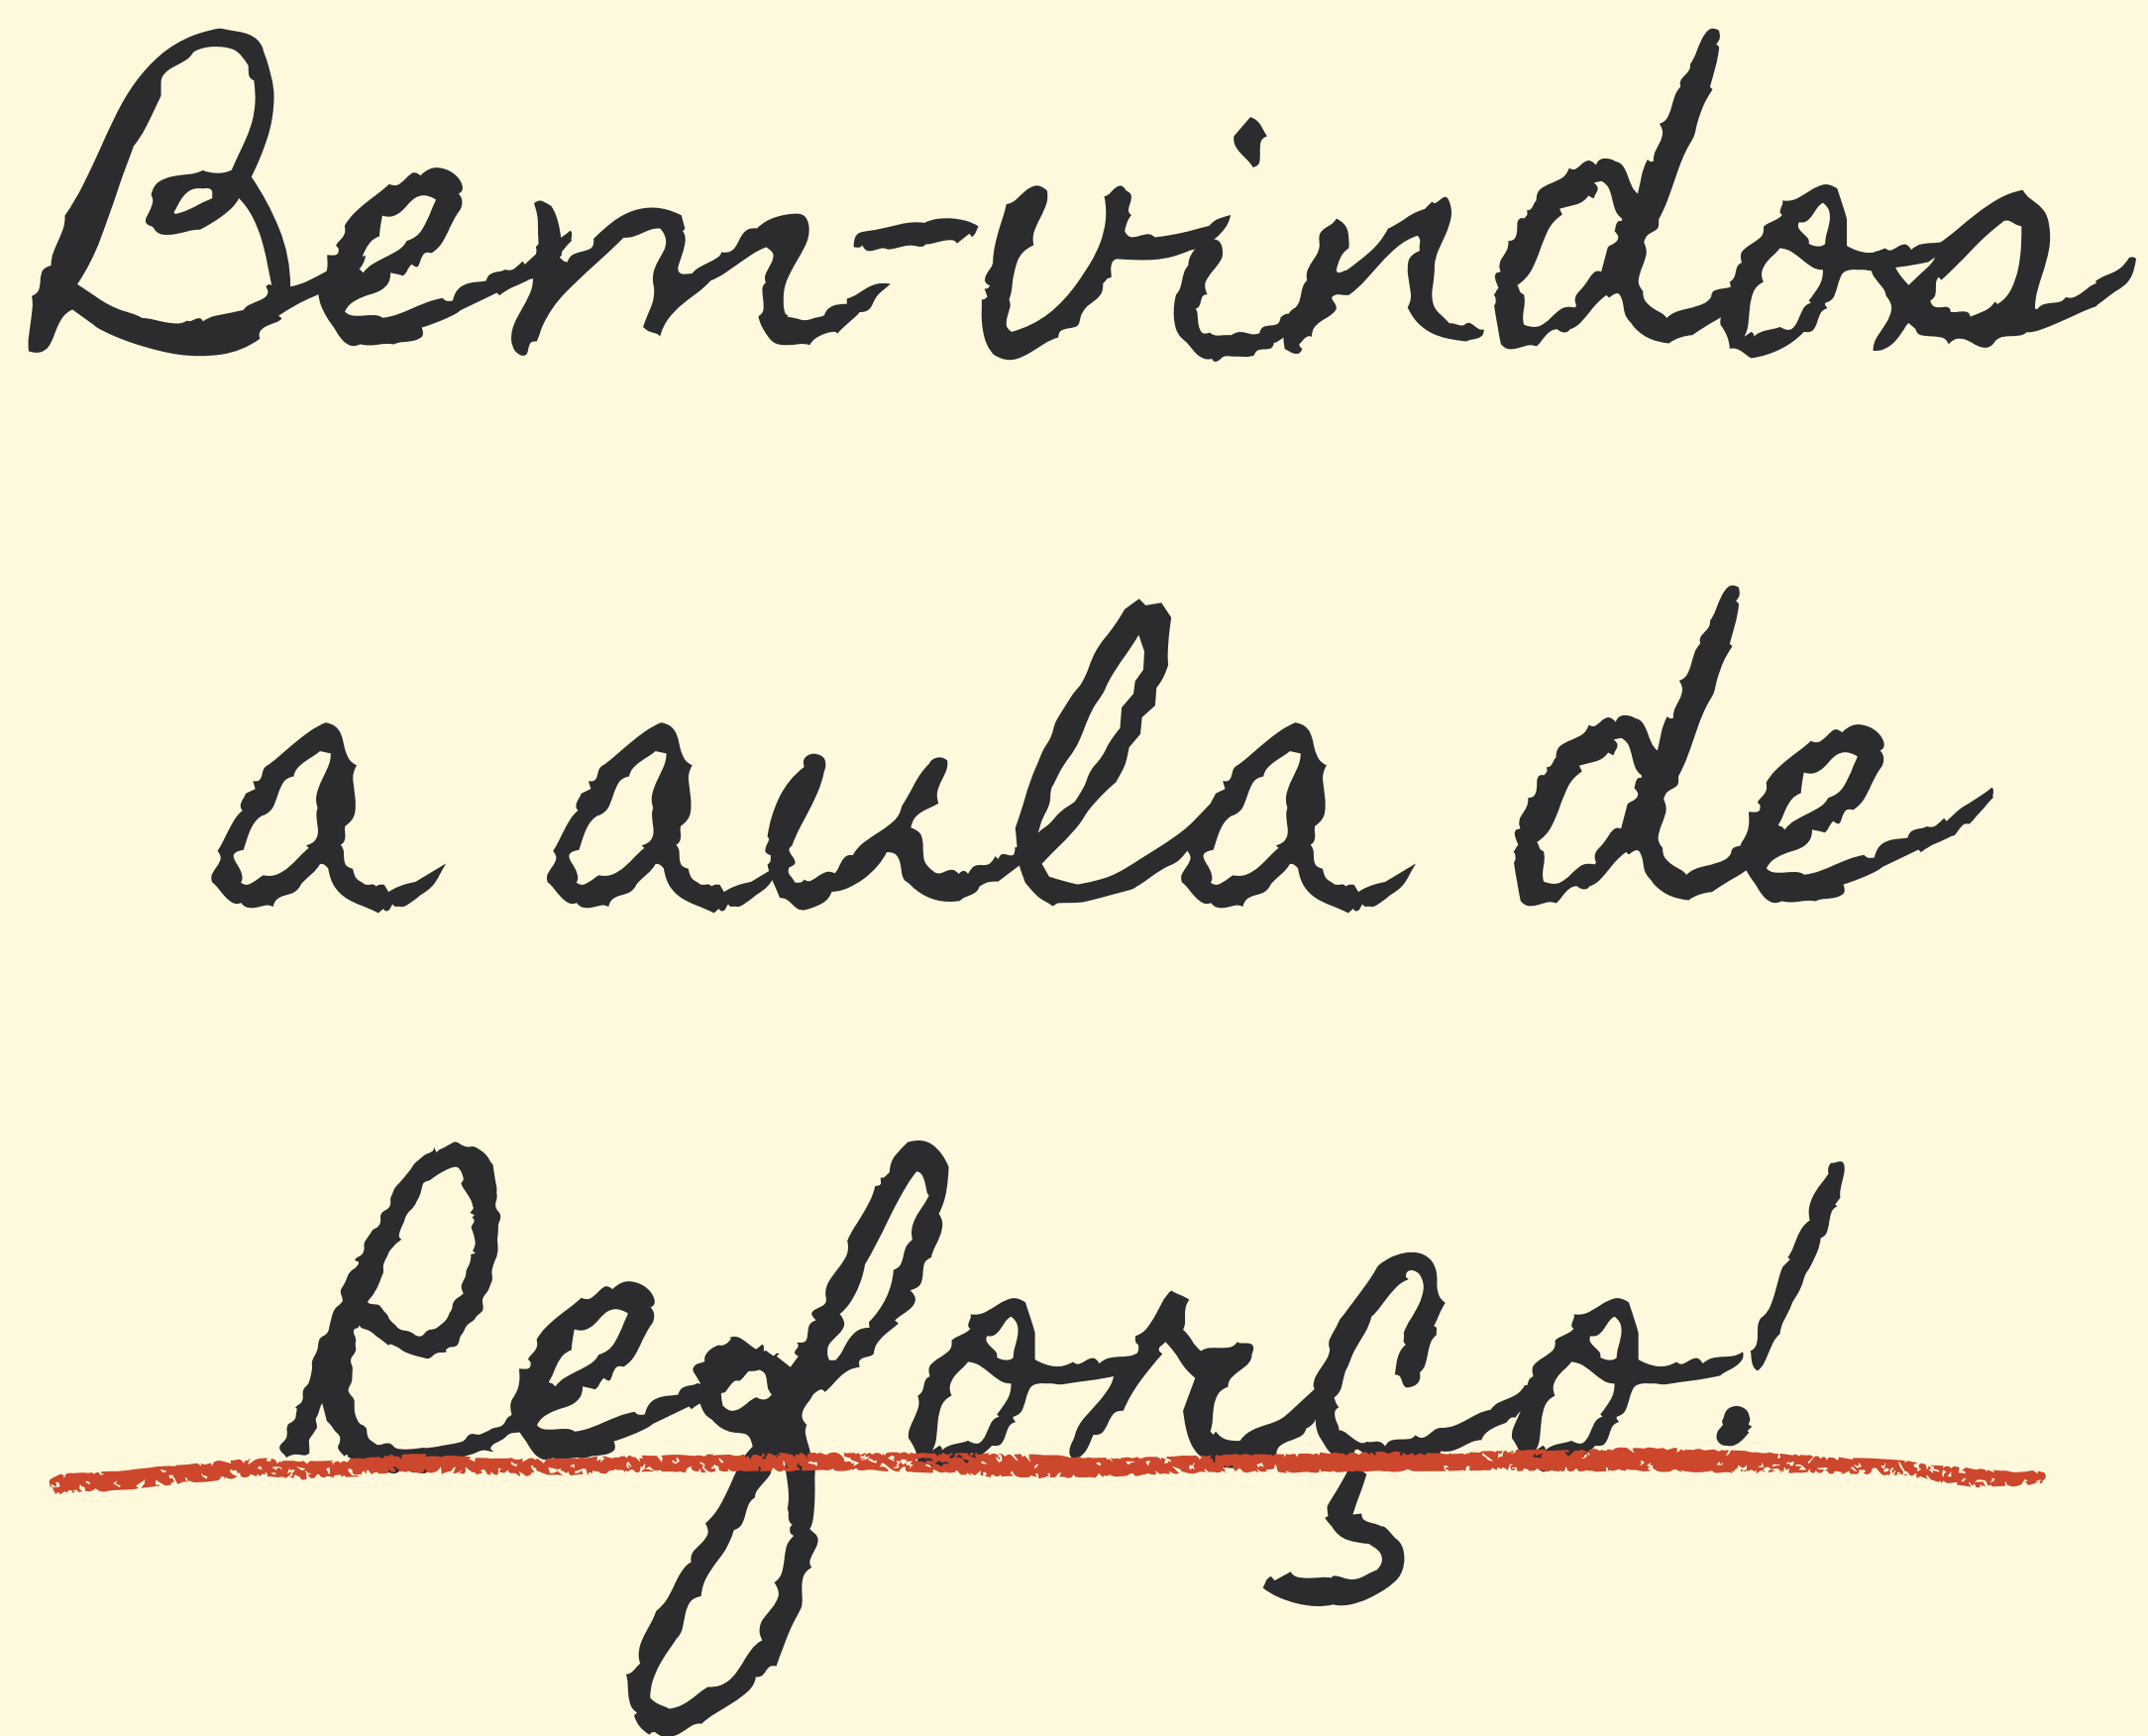 Bem-vindos
a aula de
Reforço!